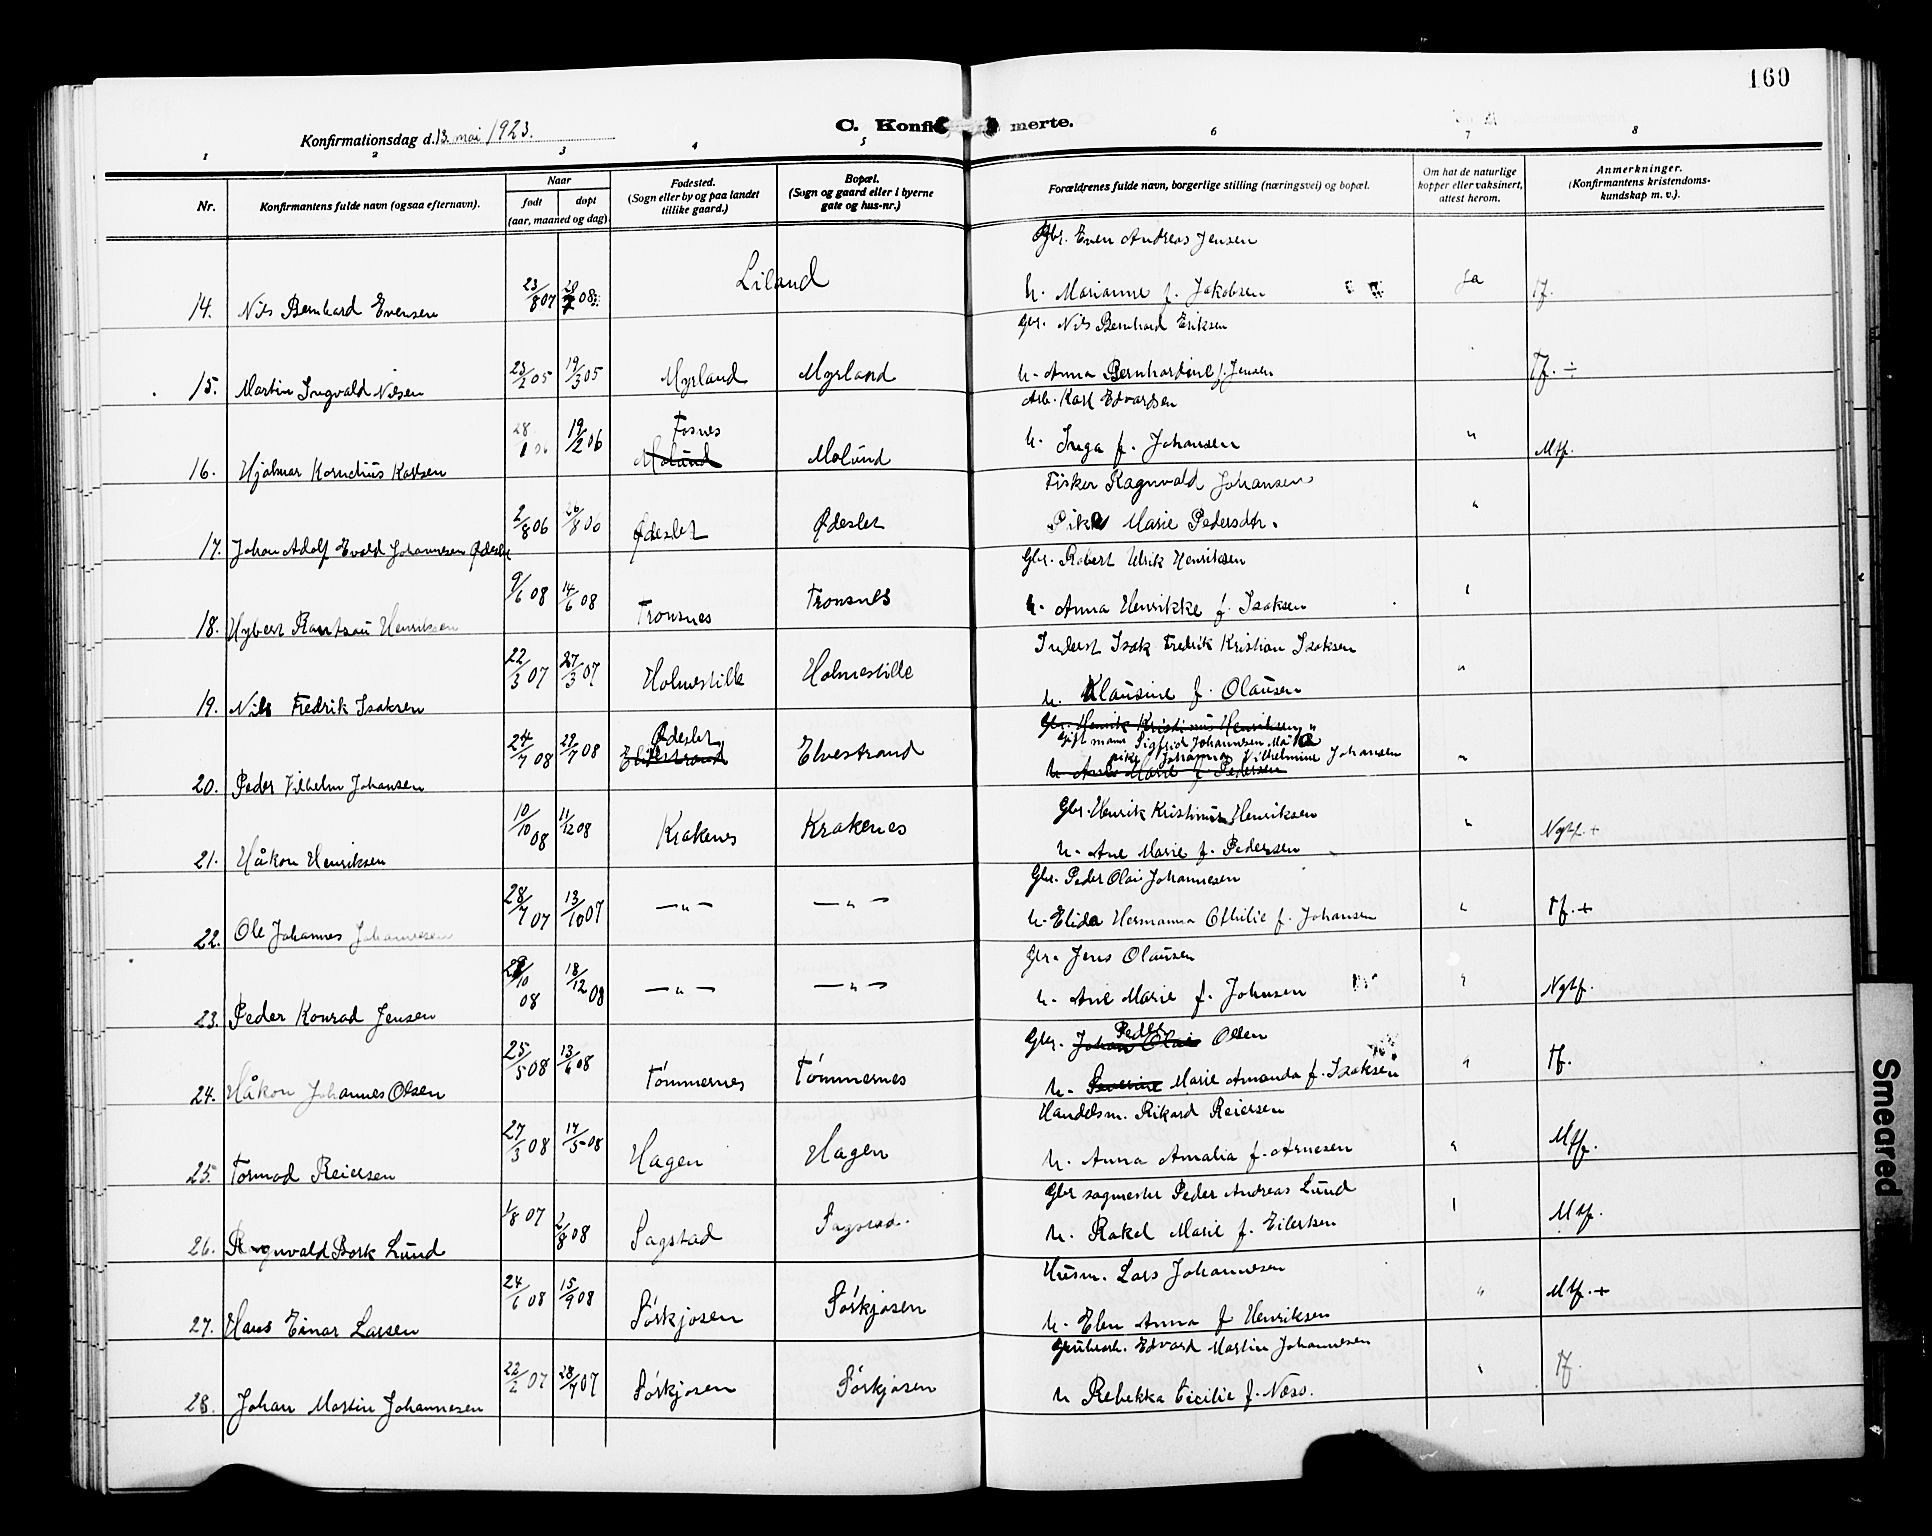 160
Konfirmationsdag d. 13. mai 1923.
C. Konfi merte.
1 2 3 4 5 6 7 8
Nr.
Konfirmantens fulde navn (ogsaa efternavn).
Naar
født døpt
(aar, maaned og dag)
Fødested.
(Sogn eller by og paa landet
tillike gaard.)
Bopæl.
(Sogn og gaard eller i byerne
gate og hus-nr.)
Forældrenes fulde navn, borgerlige stilling (næringsvei) og bopæl.
Om hat de naturlige
kopper eller vaksinert,
attest herom.
Anmerkninger.
(Konfirmantens kristendoms-
kundskap m. v.).
Gbr. Even Andreas Jensen
14. Nils Bernhard Evensen 23/8 07 Liland h. Marianne f. Jakobsen Ja Tf.
Gbr. Nils Bernhard Eriksen
15. Martin Ingvald Nilsen 23/2 05 19/3 05 Myrland Myrland h. Anna Bernhardine f. Jensen " Tf. ÷
Arb. Karl Edvardsen
Fosnes
16. Hjalmar Kornelius Karlsen 28/1 06 19/2 06 Molund Molund h. Inga f. Johansen " Mtf.
Fisker Ragnvald Johansen
17. Johan Adolf Evald Johannesen Ødeslet 2/8 06 26/8 06 Ødeslet Ødeslet Pike Marie Pedersdtr. "
Gbr. Robert Ulrik Henriksen
18. Hybert Rantzau Henriksen 9/6 08 14/6 08 Tronsnes Tronsnes h. Anna Henrikke f. Isaksen "
Inderst Isak Fredrik Kristian Isaksen
19. Nils Fredrik Isaksen 22/3 07 27/3 07 Holmestille Holmestille h. Klausine f. Olausen "
Gbr. Henrik Kristinus Henriksen
Gift mann Sigfrid Johannesen
Ødeslet pike Johanna Vilhelmine Johansen
20. Peder Vilhelm Johansen 24/7 08 29/7 08 Elvestrand Elvestrand h. Ane Marie f. Pedersen "
Gbr. Henrik Kristinus Henriksen
21. Håkon Henriksen 10/10 08 11/12 08 Krakenes Krakenes h. Ane Marie f. Pedersen " Ngtf. +
Gbr. Peder Olai Johannesen
22. Ole Johannes Johannesen 28/7 07 13/10 07 —"— —"— h. Elida Hermanna Othilie f. Johansen " Tf. +
Gbr. Jens Olausen
23. Peder Konrad Jensen 29/10 08 18/12 08 —"— —"— h. Ane Marie f. Johnsen " Ngtf.
Peder
Gbr. Johan Olai Olsen
24. Håkon Johannes Olsen 25/5 08 13/6 08 Tømmernes Tømmernes h. Severine Marie Amanda f. Isaksen " Tf.
Handelsm. Rikard Reiersen
25. Tormod Reiersen 27/3 08 17/5 08 Hagen Hagen h. Anna Amalia f. Arnesen " Mtf.
Gbr sagmester Peder Andreas Lund
26. Ragnvald Bork Lund 1/8 07 2/8 08 Sagstad Sagstad. h. Rakel Marie f. Eilertsen " Mtf.
Husm. Lars Johannesen
27. Hans Einar Larsen 24/6 08 15/9 08 Sørkjosen Sørkjosen h. Elen Anna f Henriksen " Mtf. +
Grubearb. Edvard Martin Johannesen
28. Johan Martin Johannesen 22/2 07 28/7 07 Sørkjosen Sørkjosen h Rebekka Cecilie f. Næss. " Tf.
Smeared